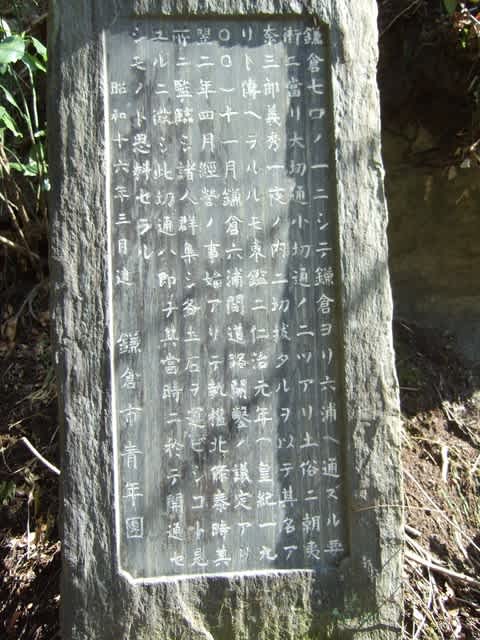 鎌倉七口ノ一ニシテ鎌倉ヨリ六浦ヘ通スル要
衝ニ當リ大切通小切通ノ二ツアリ土俗ニ朝夷
奈三郎義秀一夜ノ内ニ切拔タルヲ以テ其名ア
リト傳ヘラルルモ東鑑ニ仁治元年(皇紀一九
〇〇)十一月鎌倉六浦間道路開鑿ノ議定アリ
翌二年四月經營ノ事始アリテ執權北條泰時其
所ニ監臨シ諸人群集シ各土石ヲ運ビシコト見
ユルニ徴シ此切通ハ即チ其當時ニ於テ開通セ
シモノト思料セラル
昭和十六年三月建 鎌倉市青年團